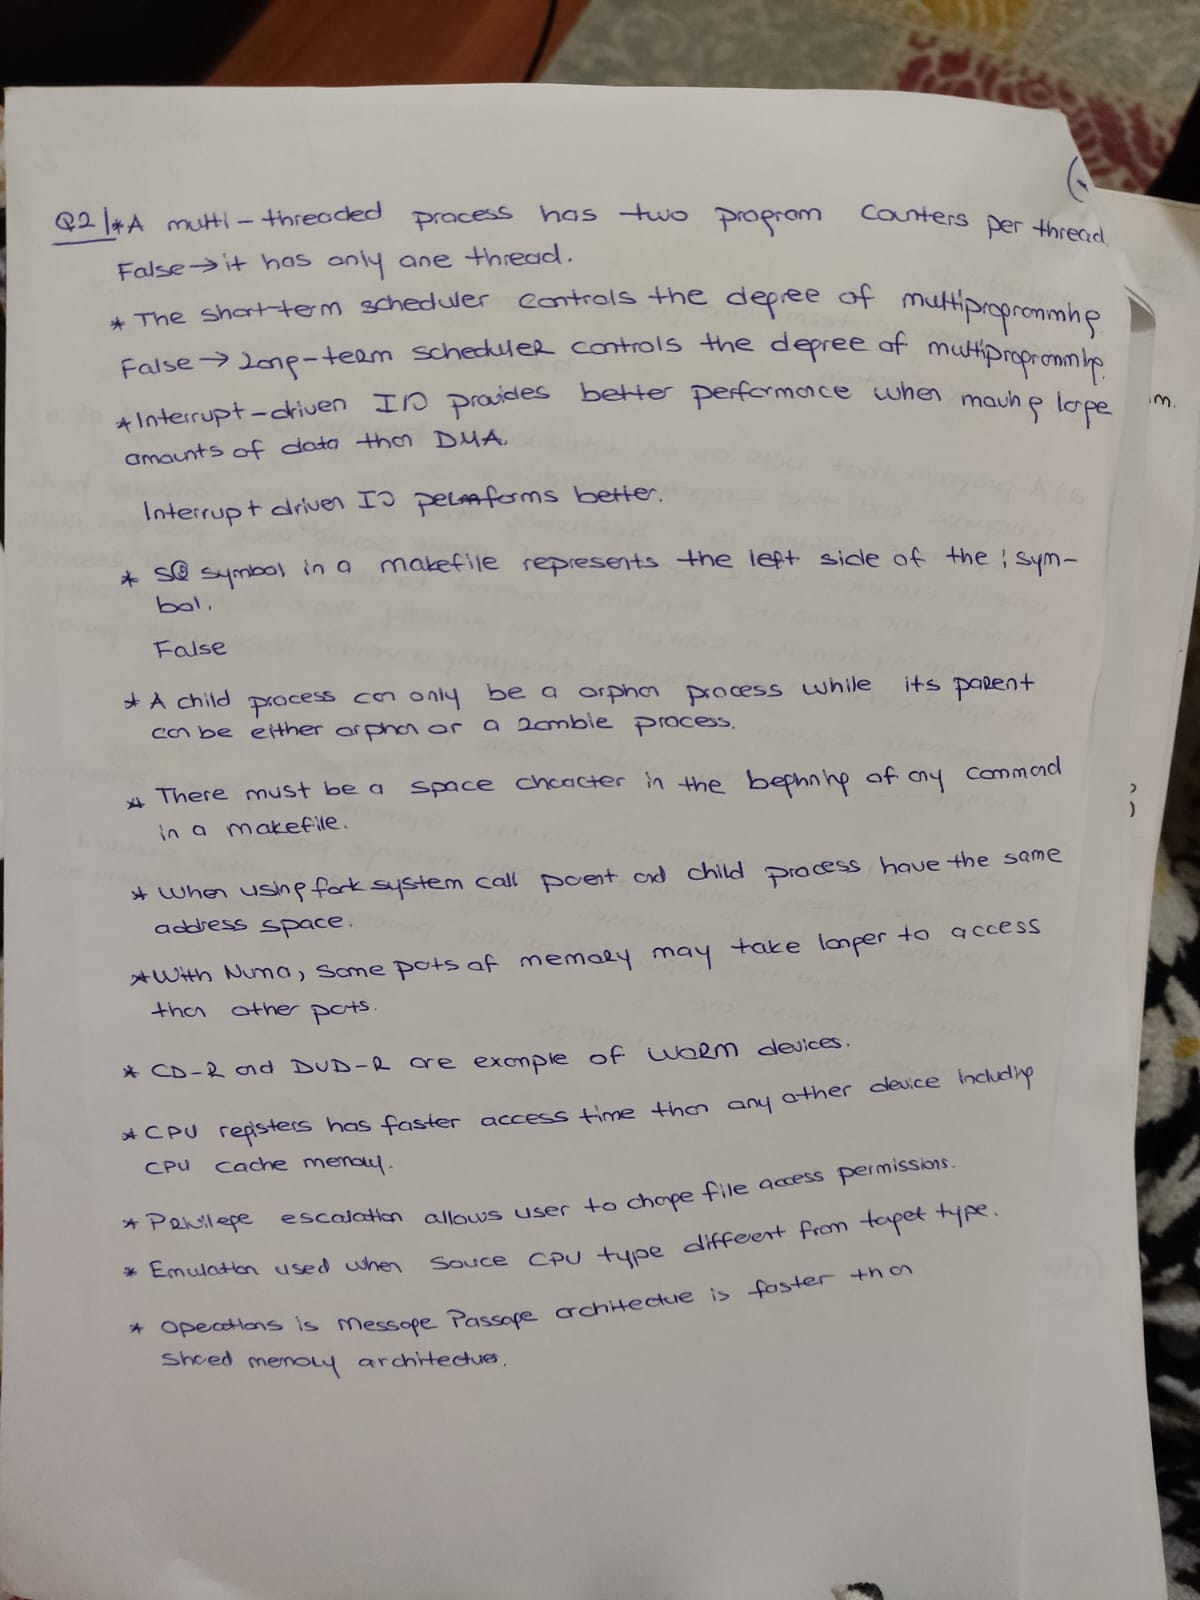 Q2 | * A multi-threaded process has two program counters per thread.
False → it has only one thread.
* The short-term scheduler controls the degree of multiprogramming
False → Long-term scheduler controls the degree of multiprogramming.
* Interrupt-driven IO provides better performance when moving large
amounts of data than DMA.
Interrupt driven IO performs better.
* S@ symbol in a makefile represents the left side of the ; sym-
bol.
False
* A child process can only be a orphan process while its parent
can be either orphan or a zombie process.
* There must be a space character in the beginning of any command
in a makefile.
* When using fork system call parent and child process have the same
address space.
* With Numa, some parts of memory may take longer to access
than other parts.
* CD-R and DVD-R are example of WORM devices.
* CPU registers has faster access time than any other device including
CPU cache memory.
* Privilege escalation allows user to change file access permissions.
* Emulation used when source CPU type different from target type.
* Operations is Message Passage architecture is faster than
Shared memory architectures.
m.